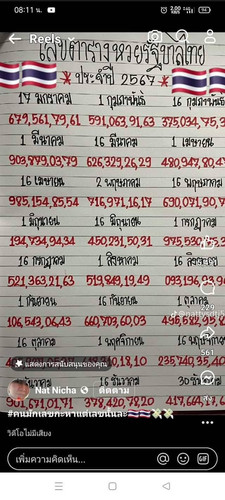 08:11 น.
Reels
เลขตารางหวยรัฐบาลไทย
ประจำปี 2567
17 มกราคม 1 กุมภาพันธ์ 16 กุมภาพันธ์
679,561,79,61 591,063,91,63 375,034,75,3
1 มีนาคม 16 มีนาคม 1 เมษายน
903,879,03,79 626,329,26,29
16 เมษายน 2 พฤษภาคม 16 พฤษภาคม
985,154,85,54 716,971,16,17 690,071,90,7
1 มิถุนายน 16 มิถุนายน 1 กรกฎาคม
194,734,94,34 450,231,50,31
16 กรกฎาคม 1 สิงหาคม 16 สิงหาคม
521,363,21,63 519,849,19,49
1 กันยายน 16 กันยายน 1 ตุลาคม
106,543,06,43 660,703,60,03
16 ตุลาคม 1 พฤศจิกายน
235,740,35,40
แสดงการสนับสนุนของคุณ
Nat Nicha
ติดตาม
16 ธันวาคม
901,671,01,71 378,420,78,20 417,664,17,6
#คนมักเลขกะหาแต่เลขนั่นละ
วิดีโอไม่มีเสียง
เพิ่มความคิดเห็น...
GIF
229
561